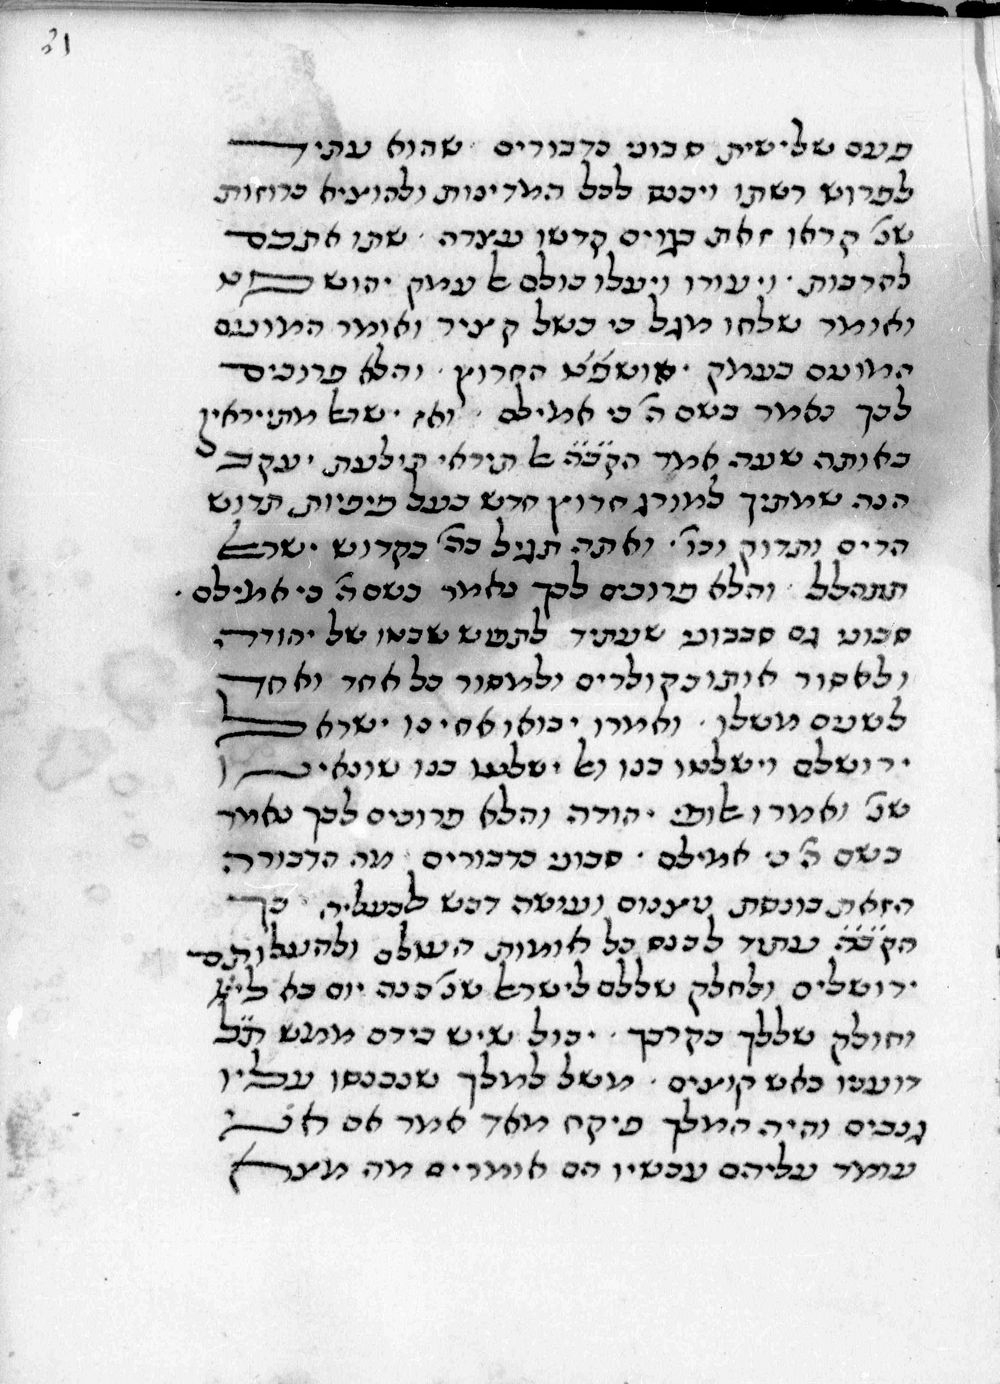 21
פעם שלישית סבוני כדבורים · שהוא עתיד
לפרוש רשתו ויכנס לכל המדינות ולהוציא כרוזות
שנ' קראו זאת בגוים קדשו עצרה · שתו אתכם
להרבות · ויעורו ויעלו כולם אל עמק יהושפט
ואומר שלחו מגל כי בשל קציר ואומר המונים
המונים בעמק יאושפט החרוץ · והלא פרוכים
לכך נאמר בשם ה' כי אמילם · ואז ישראל מתייראין
באותה שעה אמר הק"ב"ה אל תיראי תילעת יעקב
הנה שמתיך למורג חרוץ חדש בעל פיפיות תדוש
הרים ותדוק וכו' · ואתה תגיל בה' בקדוש ישראל
תתהלל · והלא פרוכים לכך נאמר בשם ה' כי אמילם ·
סבוני גם סבבוני שעתיד לתפוש שבטו של יהודה
ולאסור אותו בקולרים ולמסור כל אחד ואחד
לשנים משלו · ואמרו יבואו אחינו ישראל
ירושלם וישלטו בנו ואל ישלטו בנו שונאינו
שנ' ואמרו אלופי יהודה והלא פרוכים לכך נאמר
בשם ה' כי אמילם · סבוני כדבורים מה הדבורה
הזאת כונסת ועושה דבש לבעליה · כך
הק"ב"ה עתיד לכנס כל אומות העולם ולהעלותם
ירושלים ולחלק שללם לישראל שנ' הנה יום בא לי"י
וחולק שללך בקרבך · יכול שיש בידם ממש ת"ל
דועכו כאש קוצים · משל למלך שנכנסו עליו
גנבים והיה המלך פיקח מאד אמר אם אני
עומד עליהם עכשיו הם אומרים מה מצא